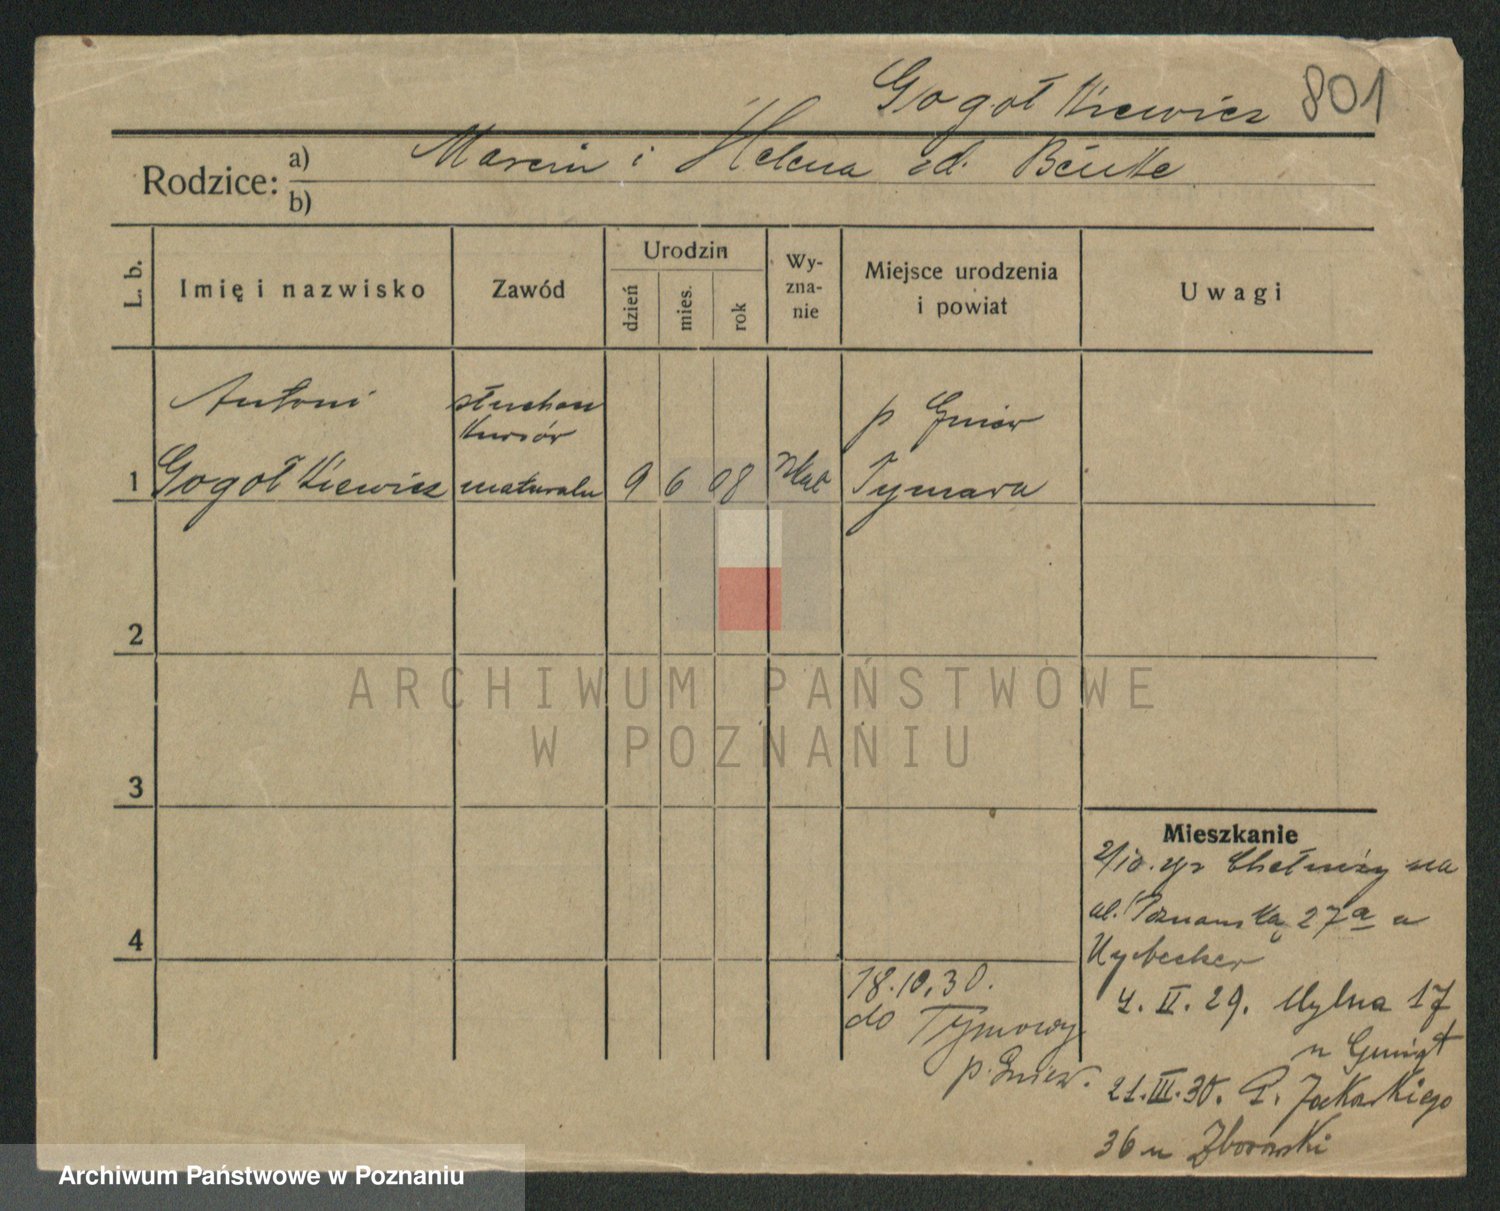 Gogołkiewicz 801
Rodzice: a) Marcin i Helena zd.
b)
L. b.
Imię i nazwisko
Zawód
Urodzin
dzień
mies.
rok
Wy-
zna-
nie
Miejsce urodzenia
i powiat
Uwagi
Antoni
Gogołkiewicz
słuchacz
kursów
maturaln
1
9
6
08
p Gniew
Tymawa
2
3
4
ARCHIWUM PAŃSTWOWE
W POZNANIU
Mieszkanie
2/10. z Chełmży na
ul. Poznańską 27a u
4. II. 29. Mylna 17
21. III. 30. P. Jackowskiego
36 u Zborowski
18.10.30.
do Tymawy
p. Gniew.
Archiwum Państwowe w Poznaniu